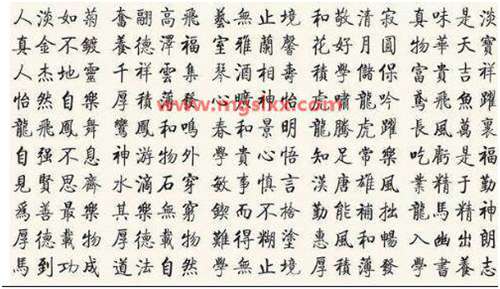 人淡如菊 奮翮高飛 藝無止境 和敬清寂 真味是淡
真金不鍍 養德澤福 室雅蘭馨 花好月圓 物華天寶
人杰地靈 千祥雲集 琴酒相壽 積學儲保 富貴吉祥
www.mgslxx.com
怡然自樂 厚積薄發 心曠神怡 虎嘯龍吟 鳶飛魚躍
龍飛鳳舞 鸞鳳和鳴 春和景明 龍騰虎躍 長風萬裏
自强不息 神游物外 學貴心悟 知足常樂 吃虧是福
見賢思齋 水滴石穿 敏事慎言 漢唐雄風 業精于勤
爲善最樂 其樂無窮 鍥而不捨 勤能補拙 龍馬精神
厚德載物 厚德載物 難得糊塗 惠風和暢 入幽出朗
馬到功成 道法自然 學無止境 厚積薄發 學書養志